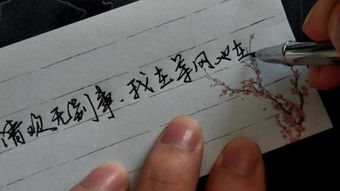 清欢无别事，我在等风也在